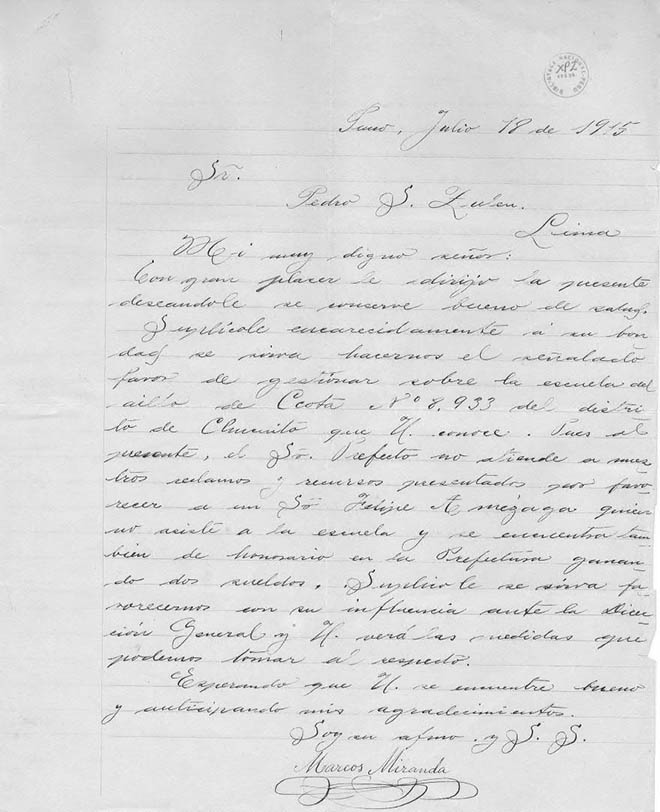 BIBLIOTECA NACIONAL PERÚ
XPZ
Puno, Julio 18 de 1915
Sr.
Pedro S. Zulen.
Lima
Mi muy digno señor:
Con gran placer le dirijo la presente
deseandole se conserve bueno de salud.
Suplícole encarecidamente á su bon
dad se sirva hacernos el señalado
favor de gestionar sobre la escuela del
aillo de Ccota Nº 8,933 del distri
to de Chucuito que U. conoce. Pues al
presente, el Sr. Prefecto no atiende a nues
tros reclamos y recursos presentados por favo
recer a un Sr Felipe A mézaga quien
no asiste a la escuela y se encuentra tam
bien de honorario en la Prefectura ganan
do dos sueldos. Suplicole se sirva fa
vorecernos con su influencia ante la Direc
ción General y U. verá las medidas que
podemos tomar al respecto.
Esperando que U. se encuentre bueno
y anticipando mis agradecimientos.
Soy su afmo. y S. S.
Marcos Miranda